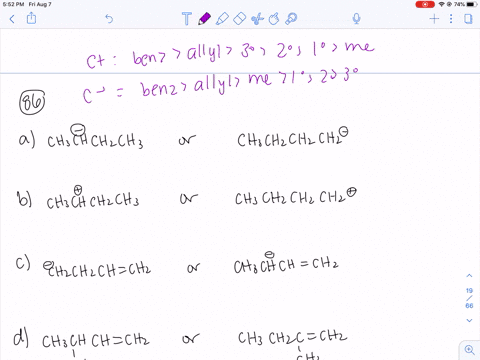 5:52 PM Fri Aug 7
74%
C+ : benz > allyl > 3°, 2°, 1° > me
C⁻ = benz > allyl > me > 1°, 2 > 3°
86
a) CH3C̈HCH2CH3 or CH3CH2CH2CH2⊖
⊖
b) CH3CHCH2CH3 or CH3CH2CH2CH2⊕
⊕
c) ⊖CH2CH2CH=CH2 or CH3CHCH=CH2
⊖
d) CH3CHCH=CH2 or CH3CH2C=CH2
CH2
19
/
66